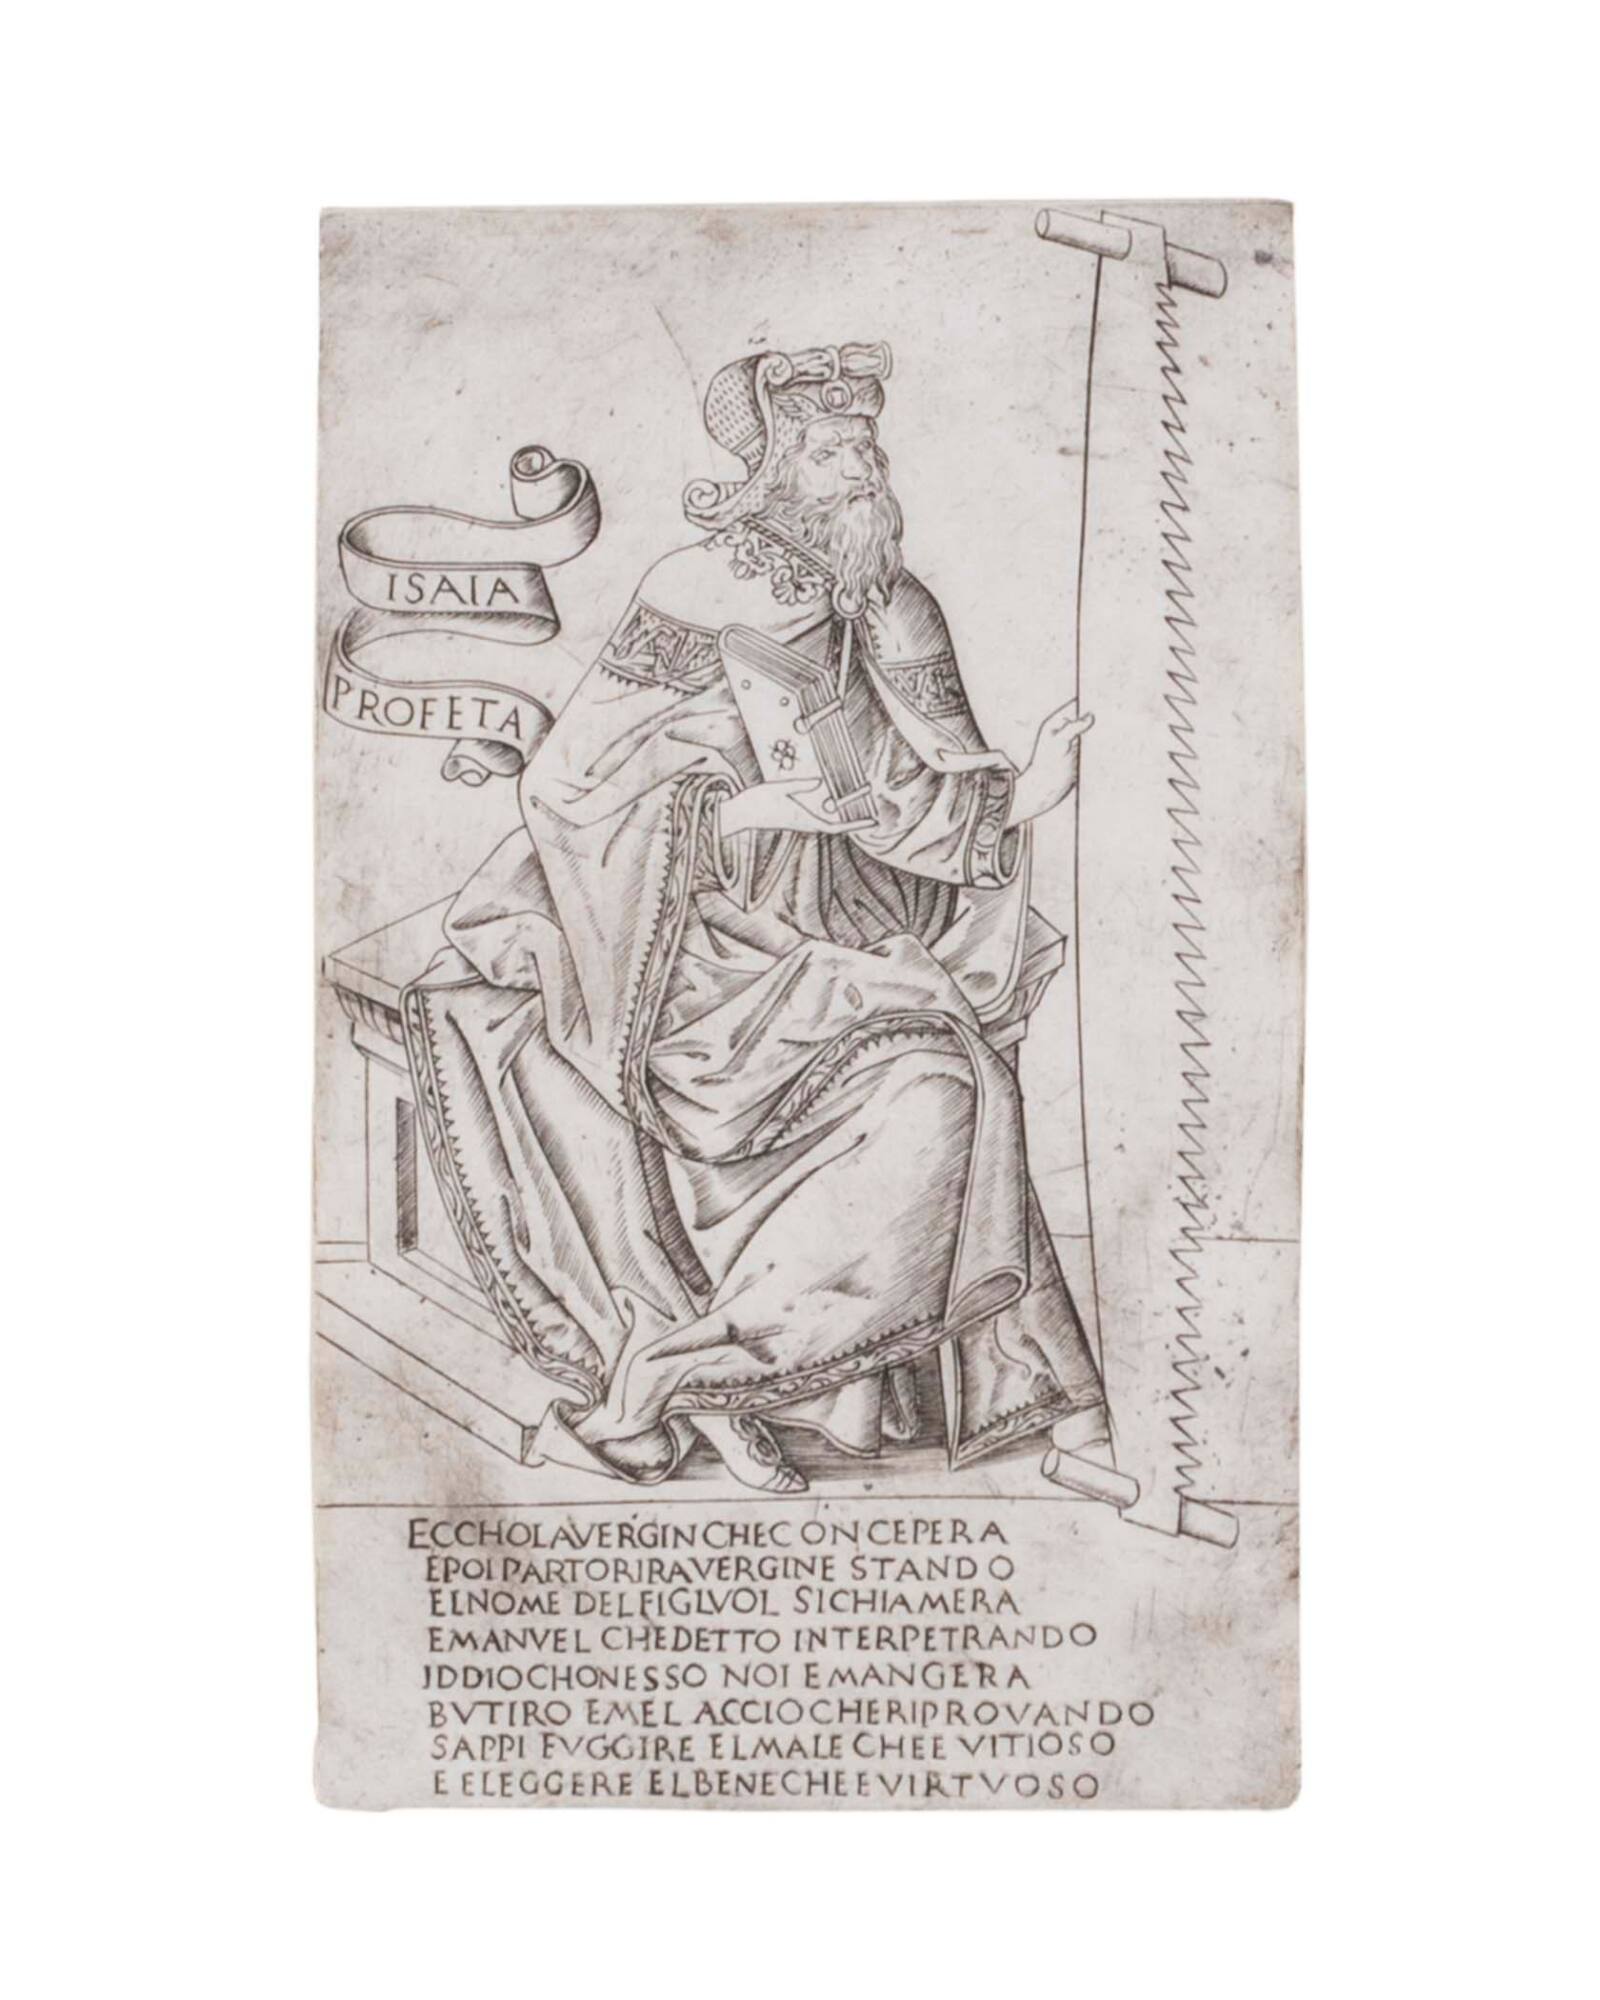 ISAIA
PROFETA
ECCHOLAVERGINCHECONCEPERA
EPOIPARTORIRAVERGINE STANDO
ELNOME DELFIGLVOL SICHIAMERA
EMANVEL CHEDETTO INTERPETRANDO
IDDIOCHONESSO NOI EMANGERA
BVTIRO EMEL ACCIOCHERIPROVANDO
SAPPI FVGGIRE ELMALE CHEE VITIOSO
E ELEGGERE ELBENECHEEVIRTVOSO